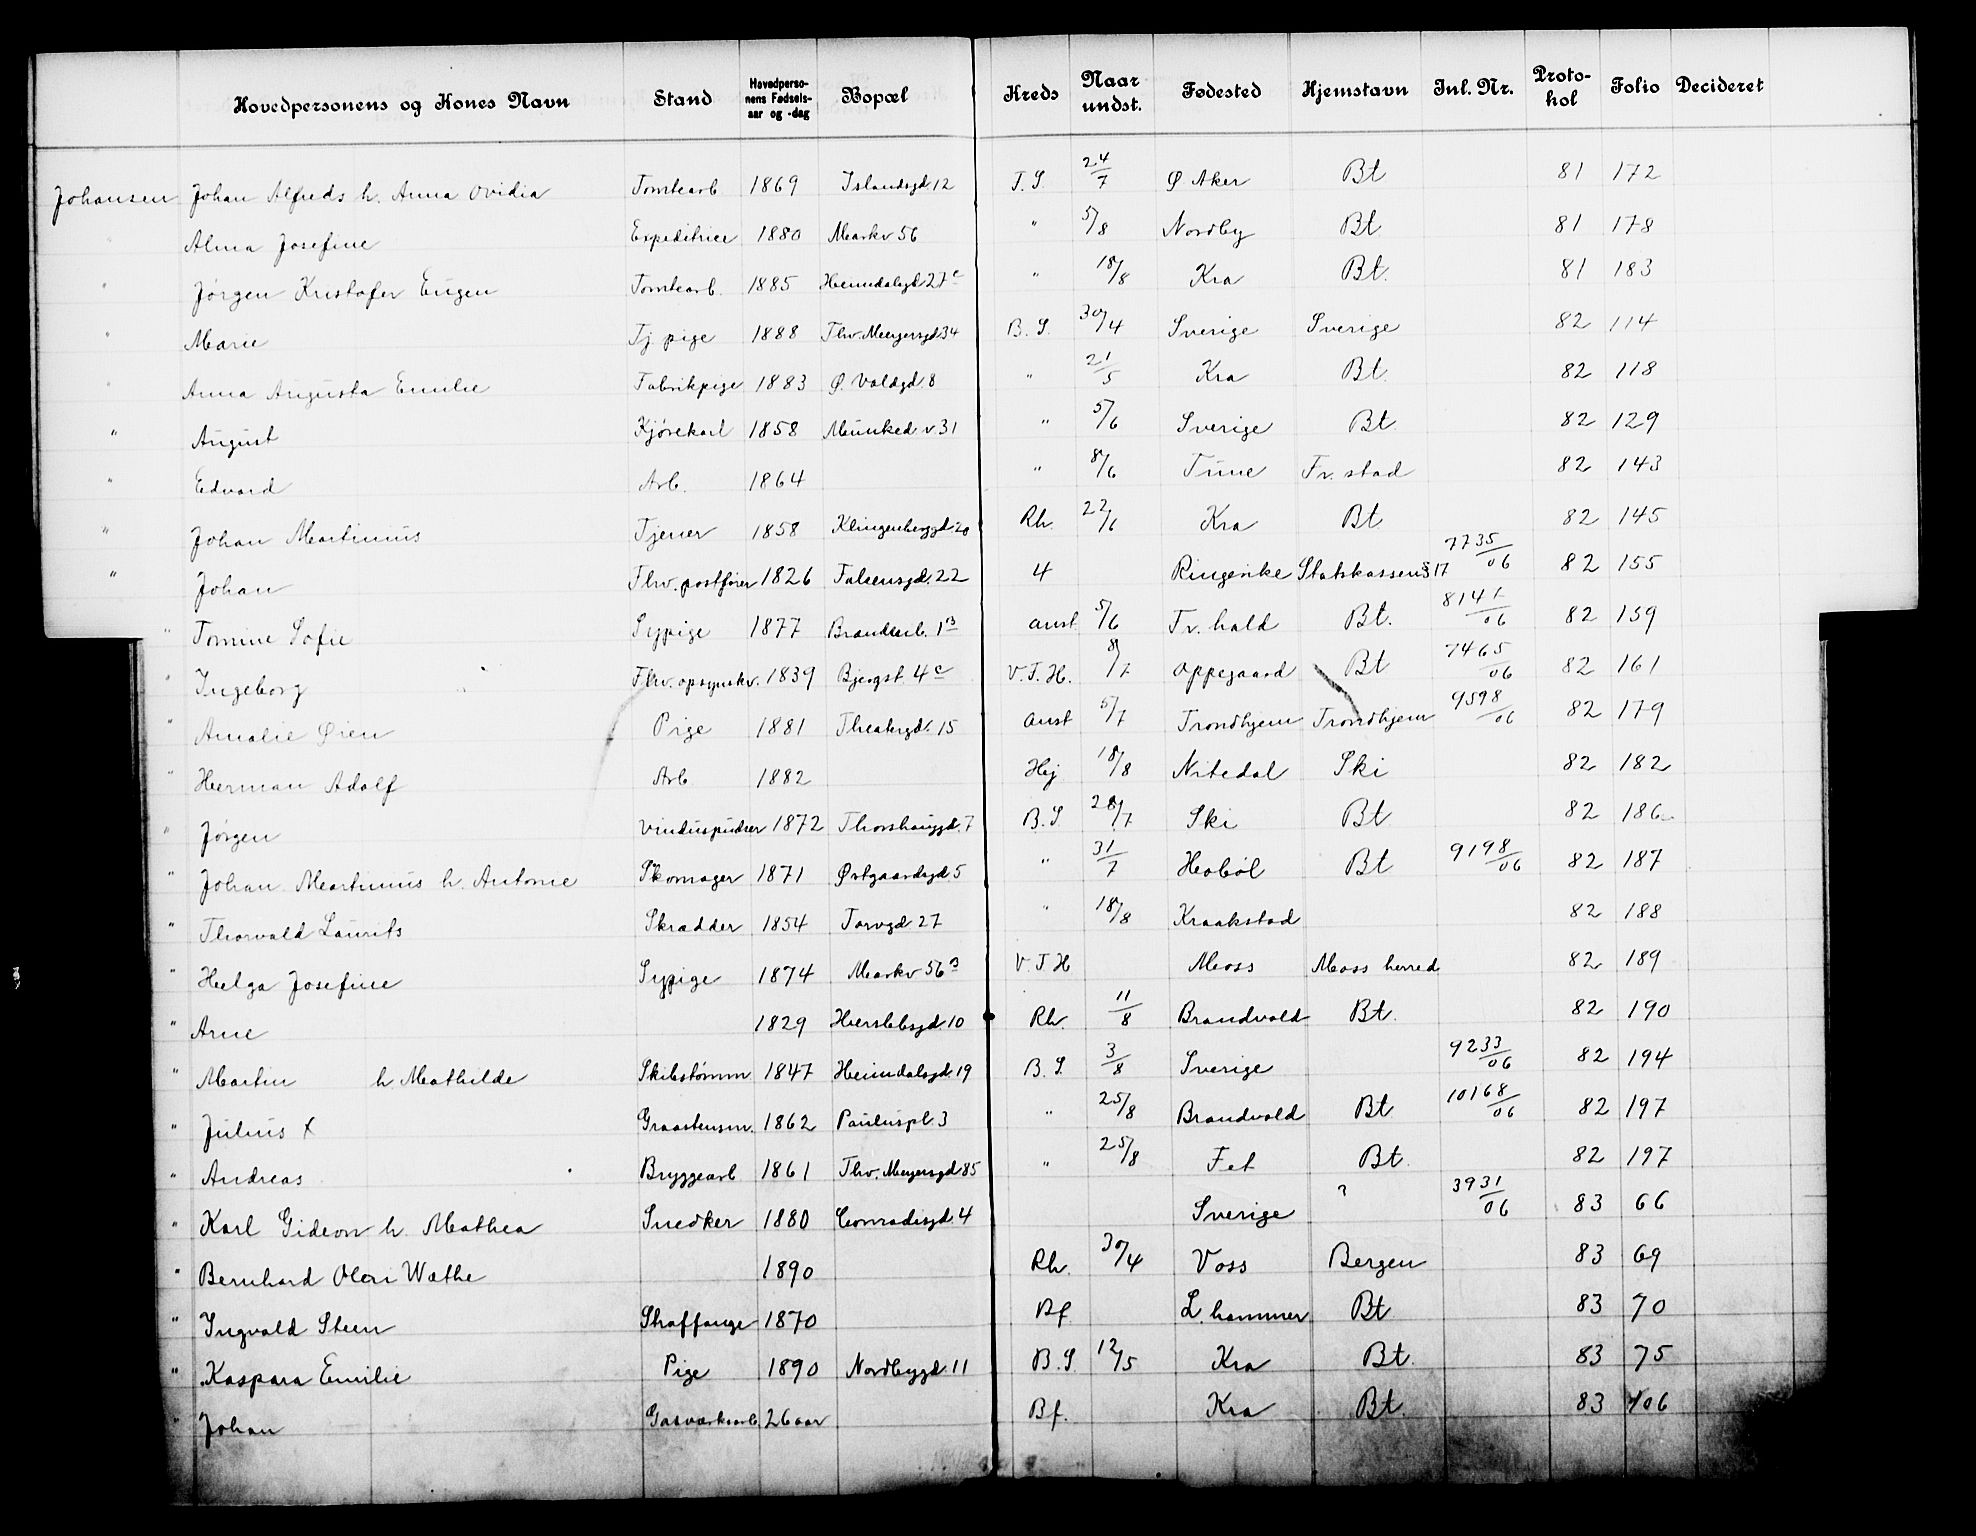 Hovedpersonens og Kones Navn Stand Hovedpersonens Fødselsaar og -dag Bopæl Kreds Naar undst. Fødested Hjemstavn Inl. Nr. Protohol Folio Decideret
Johansen Johan Alfreds h. Anna Ovidia Tomtearb 1869 Islandsgd 12 T.S. 24/7 Ø. Aker Bt 81 172
" Alma Josefine Expeditrice 1880 Markv 56 " 5/8 Nordby Bt 81 178
" Jørgen Kristofer Eugen Tomtearb. 1885 Heimdalsgd 27c " 18/8 Kra Bt. 81 183
" Marie Tj pige 1888 Thv. Meyersgd 34 B.S. 30/4 Sverige Sverige 82 114
" Anna Augusta Emilie Fabrikpige 1883 Ø. Voldgd. 8 " 21/5 Kra Bt. 82 118
" August Kjørekarl 1858 Munked v 31 " 5/6 Sverige Bt. 82 129
" Edvard Arb. 1864 " 8/6 Tune Fr. stad 82 143
" Johan Martinius Tjener 1858 Klingenberggd 20 Rh. 22/6 Kra Bt 82 145
" Johan Fhv. postfører 1826 Falsensgd. 22 4 Ringerike Statskassen §17 7735/06 82 155
" Tomine Sofie Sypige 1877 Brandtarb. 1B anst 5/6 Fr. hald Bt. 8141/06 82 159
" Ingeborg " Fhv. opsynskv. 1839 Bjergst. 4c V.F.H. 8/7 Oppegaard Bt 7465/06 82 161
" Amalie Øien Pige 1881 Theatergd. 15 anst 5/7 Trondhjem Trondhjem 9598/06 82 179
" Herman Adolf Arb 1882 Hej 18/8 Nitedal Ski 82 182
" Jørgen Vinduspudser 1872 Thorshauggd. 7 B.S. 28/7 Ski Bt 82 186
" Johan Martinius h. Antonie Skomager 1871 Østgaardsgd 5 " 31/7 Hobøl Bt 9198/06 82 187
" Thorvald Laurits Skrædder 1854 Torvgd 27 " 18/8 Kraakstad 82 188
" Helga Josefine Sypige 1874 Markv 56B V.F.H Moss Moss herred 82 189
" Arne 1829 Herslebsgd. 10 Rh. 11/8 Brandvold Bt. 82 190
" Martin h Mathilde Skibstømm 1847 Heimdalsgd. 19 B.S. 3/8 Sverige 9233/06 82 194
" Julius X Graastensm. 1862 Pauluspl. 3 " 25/8 Brandvold Bt 10168/06 82 197
" Andreas Bryggearb 1861 Thv. Meyersgd 85 " 25/8 Fet Bt. 82 197
" Karl Gideon h. Mathea Snedker 1880 Conradisgd. 4 Sverige ? 3931/06 83 66
" Bernhard Olai Wæthe 1890 Rh. 30/4 Voss Bergen 83 69
" Ingvald Steen Straffange 1870 Bf. L. hammer Bt. 83 70
" Kaspara Emilie Pige 1890 Nordbygd. 11 B.S. 12/5 Kra Bt. 83 75
" Johan Gasværksarb. 26 aar Bf. Kra Bt. 83 106